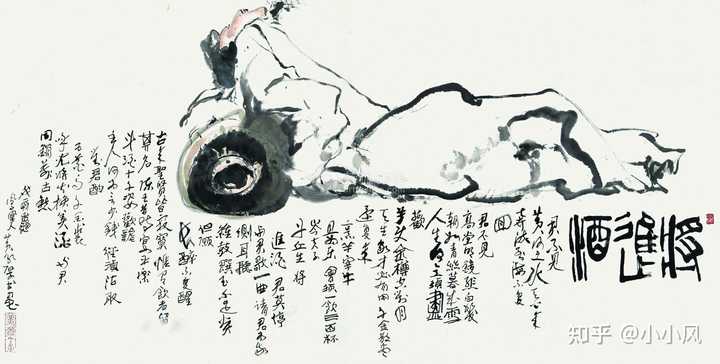 將進酒
君不見
黃河之水天上來
奔流到海不復
回
君不見
高堂明鏡悲白髮
朝如青絲暮成雪
人生得意須盡
歡
莫使金樽空對月
天生我才必有用千金散盡
還復來
烹羊宰牛
且為樂會須一飲三百杯
岑夫子
丹丘生將
進酒君莫停
與君歌一曲請君為我
側耳聽
鐘鼓饌玉不足貴
但願
長醉不復醒
古來聖賢皆寂寞惟有飲者留
其名陳王昔時宴平樂
斗酒十千恣歡謔
主人何為言少錢徑須沽取
對君酌
五花馬千金裘
呼兒將出換美酒與君
同銷萬古愁
知乎 @小小风